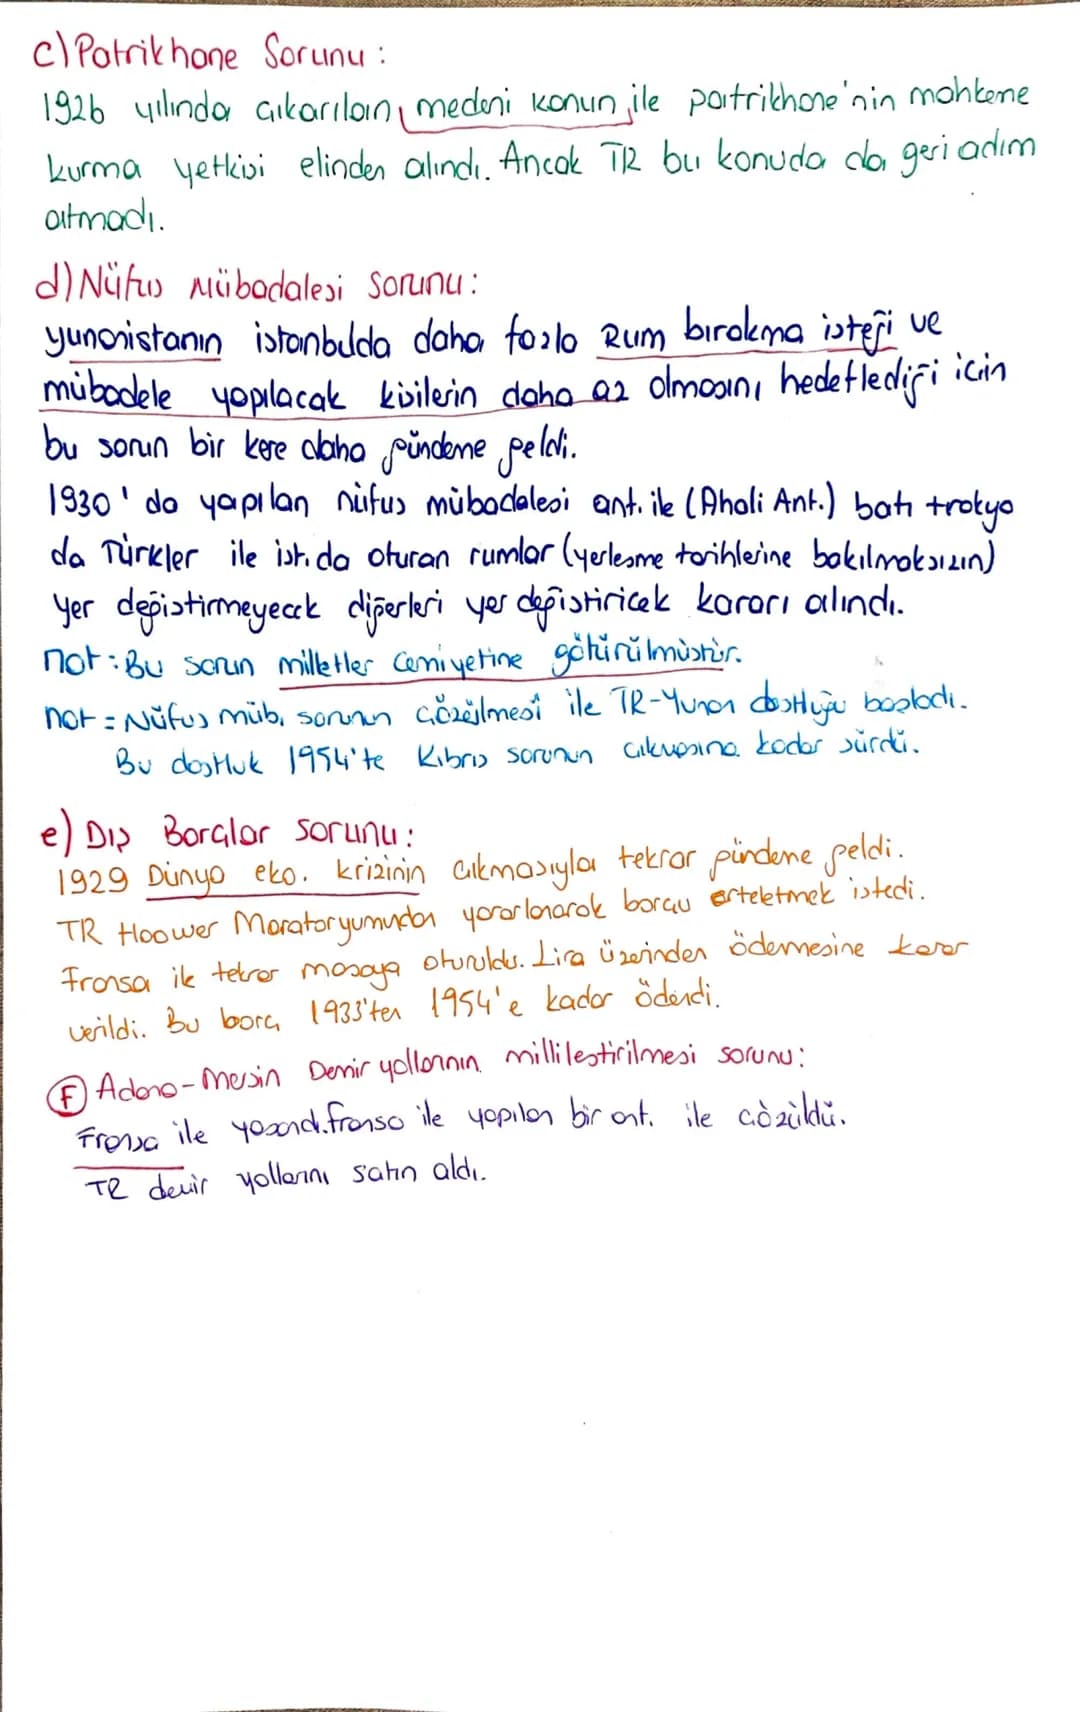 c) Patrikhane Sorunu :
1926 yılında çıkarılan, medeni kanun ile patrikhane'nin mahkeme
kurma yetkisi elinden alındı. Ancak TR bu konuda da geri adım
atmadı.
d) Nüfus Mübadalesi sorunu:
yunanistanın istanbulda daha fazla Rum bırakma isteği ve
mübadele yapılacak kişilerin daha az olmasını hedeflediği için
bu sorun bir kere daha gündeme geldi.
1930' da yapılan nüfus mübadalesi ant. ile (Ahali Ant.) batı trakya
da Türkler ile ist. da oturan rumlar (yerleşme tarihlerine bakılmaksızın)
yer değiştirmeyecek diğerleri yer değiştiricek kararı alındı.
not : Bu sorun milletler cemiyetine götürülmüştür.
not = Nüfus müb. sorunun çözülmesi ile TR-Yunan dostluğu başladı.
Bu dostluk 1954'te Kıbrıs sorunun çıkmasına kadar sürdü.
e) Dış Borçlar sorunu :
1929 Dünya eko. krizinin çıkmasıyla tekrar gündeme geldi.
TR Hoower Moratoryumundan yararlanarak borcu erteletmek istedi.
Fransa ile tekrar masaya oturuldu. Lira üzerinden ödemesine karar
verildi. Bu borç 1933'ten 1954'e kadar ödendi.
F) Adana-Mersin Demir yollarının millileştirilmesi sorunu:
Fransa ile yaşandı. fransa ile yapılan bir ant. ile çözüldü.
TR demir yollarını satın aldı.